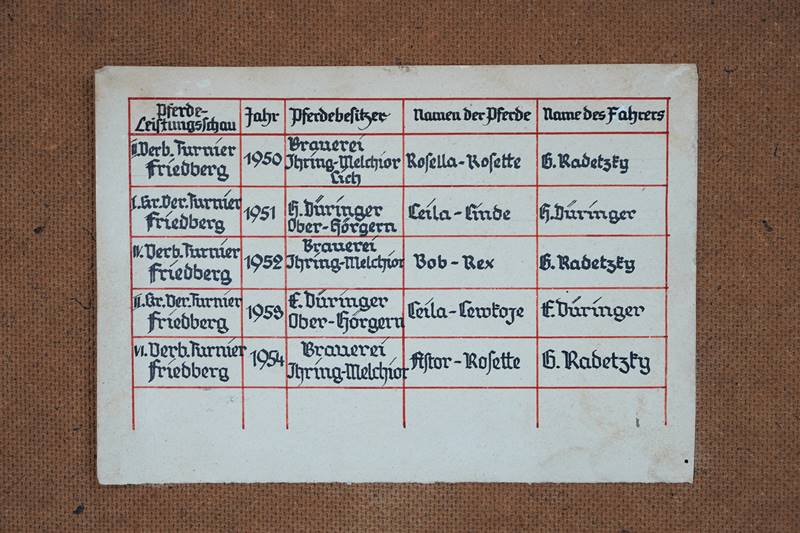 Pferde-
Leistungsschau Jahr Pferdebesitzer Namen der Pferde Name des Fahrers
II. Verb. Turnier
Friedberg
1950
Brauerei
Ihring-Melchior
Lich
Rosella-Rosette
G. Radetzky
I. Kr. Ver. Turnier
Friedberg
1951
H. Düringer
Ober-Hörgern
Leila-Linde
H. Düringer
IV. Verb. Turnier
Friedberg
1952
Brauerei
Ihring-Melchior
Bob-Rex
G. Radetzky
II. Kr. Ver. Turnier
Friedberg
1953
E. Düringer
Ober-Hörgern
Leila-Lewkoje
E. Düringer
VI. Verb. Turnier
Friedberg
1954
Brauerei
Ihring-Melchior
Astor-Rosette
G. Radetzky